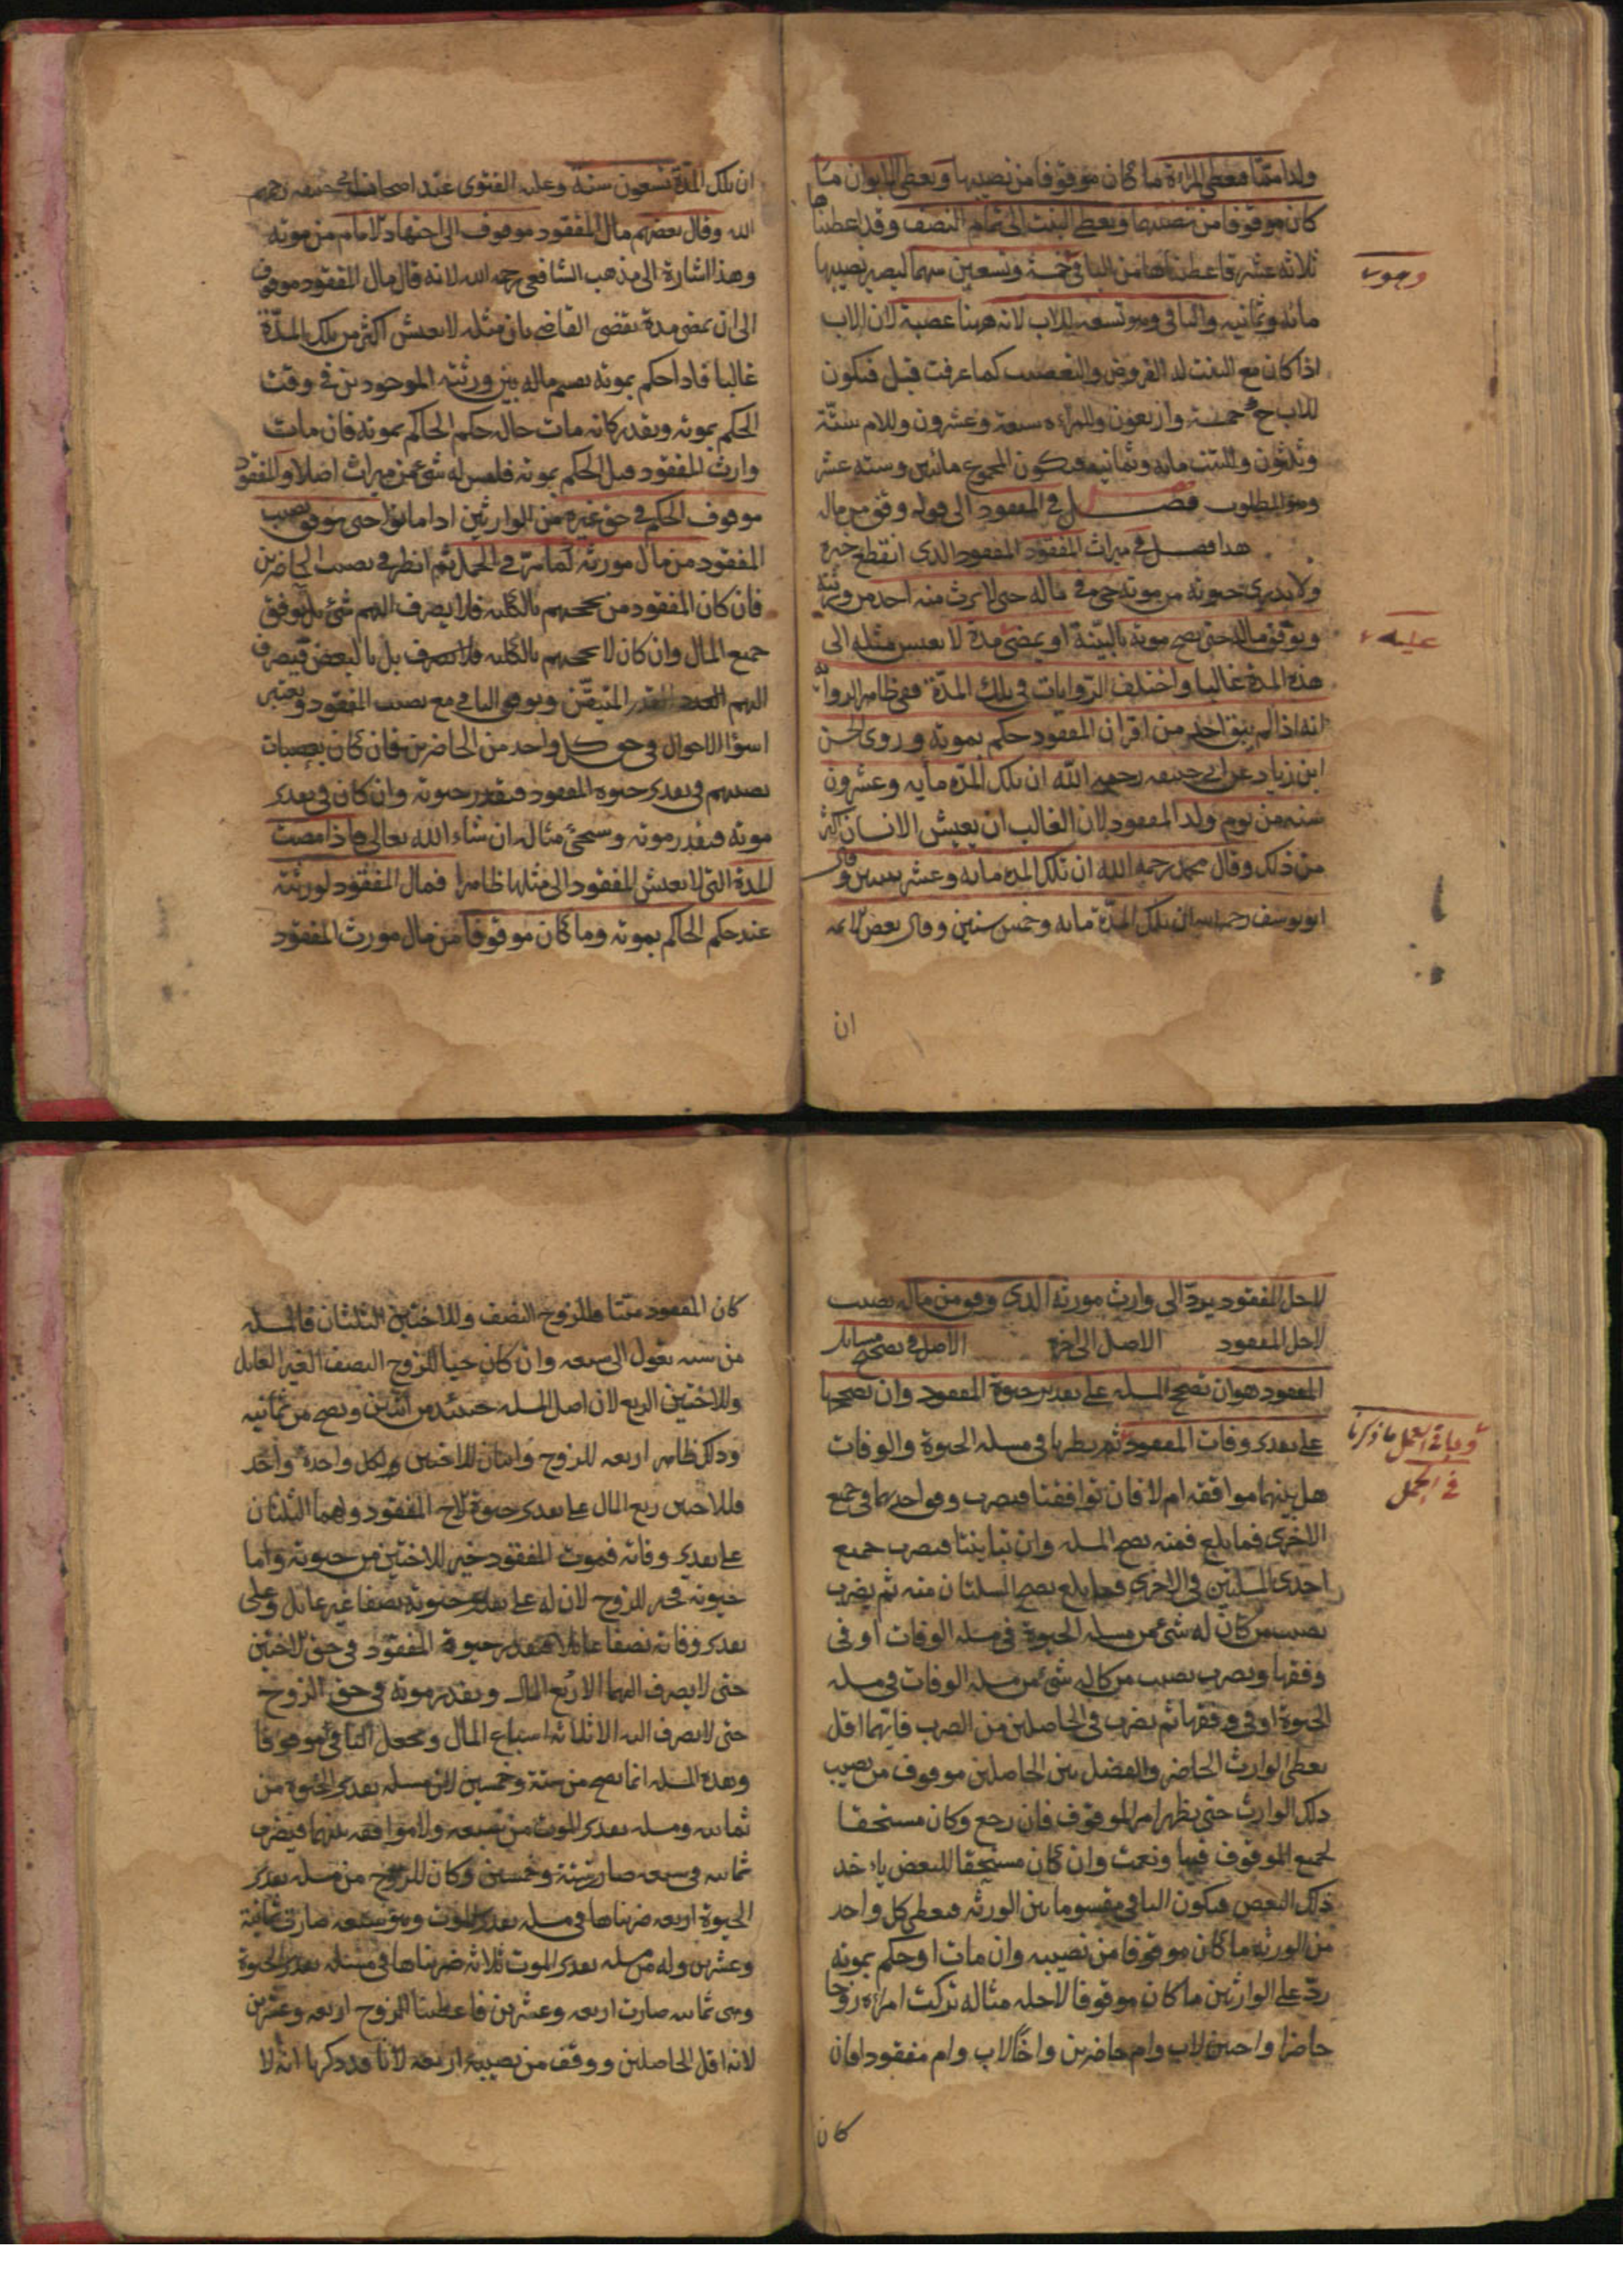 ولدا ميتا فيعطى للمراة ما كان موقوفا من نصيبها ويعطى للابوان ما
كان موقوفا من نصيبهما ويعطى للبنت الى تمام النصف وقد اعطيناها
ثلاثة عشر فاعطيناها من الباقى خمسة وتسعين سهما ليصير نصيبها
مائة وثمانية والباقى وهو تسعة للاب لانه ههنا عصبة لان الاب
اذا كان مع البنت له الفروض والتعصيب كما عرفت قبل فيكون
للاب ح خمسة واربعون وللمراة سبعة وعشرون وللام ستة
وثلثون وللبنت مائة وثمانية فيكون المجموع مائتين وستة عشر
وهو المطلوب فصل فى المفقود الى قوله وقف من ماله
هذا فصل فى ميراث المفقود المفقود الذى انقطع خبره
ولا يدرى حيوته من موته حى فى ماله حتى لا يرث منه احد من ورثته
ويوقف ماله حتى يصح موته بالبينة او يمضى مدة لا يعيش مثله الى
هذه المدة غالبا واختلف الروايات فى تلك المدة ففى ظاهر الرواية
انه اذا لم يبق احد من اقران المفقود حكم بموته وروى الحسن
ابن زياد عن ابى حنيفه رحمه الله ان تلك المدة مايه وعشرون
سنه من يوم ولد المفقود لان الغالب ان يعيش الانسان اكثر
من ذلك وقال محمد رحمه الله ان تلك المده مايه وعشر سنين وقال
ابو يوسف رحمه الله ان تلك المدة مايه وخمس سنين وقال بعض الائمه
ان
وجوب
عليه
ان تلك المدة تسعون سنة وعليه الفتوى عند اصحاب ابى حنيفه رحمهم
الله وقال بعضهم مال المفقود موقوف الى اجتهاد الامام من موته
وهذا اشارة الى مذهب الشافعى رحمه الله لانه قال مال المفقود موقوف
الى ان يمضى مدة يقضى القاضى بان مثله لا يعيش اكثر من تلك المدة
غالبا فاذا حكم بموته يقسم ماله بين ورثته الموجودين فى وقت
الحكم بموته ويقدر كانه مات حال حكم الحاكم بموته فان مات
وارث المفقود قبل الحكم بموته فليس له شئ من ميراث اصلا والمفقود
موقوف الحكم فى حق غيره من الوارثين اذا ماتوا حتى يوقف نصيب
المفقود من مال مورثه كما مر فى الحمل ثم انظر فى نصيب الحاضرين
فان كان المفقود من يحجبهم بالكليه فلا يصرف اليهم شئ بل يوقف
جميع المال وان كان لا يحجبهم بالكليه فلا يصرف بل بالبعض فيصرف
اليهم القدر المتيقن ويوقف الباقى مع نصيب المفقود ويعتبر
اسوأ الاحوال فى حق كل واحد من الحاضرين فان كان نصيبات
نصيبهم فى تقدير حيوة المفقود فيقدر حيوته وان كان فى تقدير
موته فيقدر موته وسيجئ مثاله ان شاء الله تعالى فاذا مضت
المدة التى لا يعيش المفقود الى مثلها ظاهرا فمال المفقود لورثته
عند حكم الحاكم بموته وما كان موقوفا من مال مورث المفقود
لاجل المفقود يرد الى وارث مورثه الذى وقف من ماله نصيب
لاجل المفقود الاصل الى اخره الاصل فى تصحيح مسايل
المفقود هو ان تصحح المسله على تقدير حيوة المفقود وان تصححها
على تقدير وفات المفقود ثم ينظر ما فى مسله الحيوة والوفات
هل بينهما موافقه ام لا فان توافقتا فيضرب وفق احديهما فى جميع
الاخرى فما بلغ فمنه يصح المسله وان تباينتا فيضرب جميع
احدى المسلتين فى الاخرى فما بلغ يصح المسلتان منه ثم يضرب
نصيب من كان له شئ من مسله الحيوة فى مسله الوفات او فى
وفقها ويضرب نصيب من كان له شئ من مسله الوفات فى مسله
الحيوة او فى وفقها ثم يضرب فى الحاصلين من الضرب فايهما اقل
يعطى الوارث الحاضر والفضل بين الحاصلين موقوف من نصيب
ذلك الوارث حتى يظهر امر الموقوف فان رجع وكان مستحقا
لجميع الموقوف فبها ونعمت وان كان مستحقا للبعض ياخذ
ذلك البعض فيكون الباقى مقسوما بين الورثه فيعطى كل واحد
من الورثه ما كان موقوفا من نصيبه وان مات او حكم بموته
رد على الوارثين ما كان موقوفا لاجله مثاله تركت امراة زوجا
حاضرا واختين لاب وام حاضرين واخا لاب وام مفقودا فان
كان
وباقى العمل ما ذكرنا
فى الحمل
كان المفقود ميتا فللزوج النصف وللاختين الثلثان فالمسله
من سته تعول الى سبعه وان كان حيا للزوج النصف الغير العايل
وللاختين الربع لان اصل المسله حينئذ من اثنين ويصح من ثمانيه
وذلك ظاهر اربعه للزوج واثنان للاختين ولكل واحدة واحد
فللاختين ربع المال على تقدير حيوة الاخ المفقود ولهما الثلثان
على تقدير وفاته فموت المفقود خير للاختين من حيوته واما
حيوته فخير للزوج لان له على تقدير حيوته نصفا غير عايل وعلى
تقدير وفاته نصفا عايلا فيقدر حيوة المفقود فى حق الاختين
حتى لا يصرف اليهما الا ربع المال ويقدر موته فى حق الزوج
حتى لا يصرف اليه الا ثلاثه اسباع المال ويجعل الباقى موقوفا
وهذه المسله انما يصح من ستة وخمسين لان مسله تقدير الحيوة من
ثمانيه ومسله تقدير الموت من سبعه ولا موافقه بينهما فيضرب
ثمانيه فى سبعه صار ستة وخمسين وكان للزوج من مسله تقدير
الحيوة اربعه ضربناها فى مسله تقدير الموت وهو سبعه صارت ثمانية
وعشرين وله من مسله تقدير الموت ثلاثه ضربناها فى مسئله تقدير الحيوة
وهى ثمانيه صارت اربعه وعشرين فاعطينا للزوج اربعه وعشرين
لانه اقل الحاصلين ووقف من نصيبه اربعه لانا قد ذكرنا انه لا